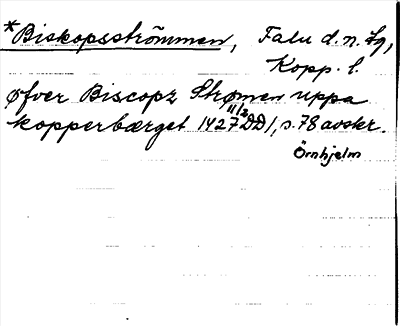 *Biskopsströmmen, Falu d.n. Lg,
Kopp. l.
øfver Biscopz Strømen uppa
kopperbærget 1427 11/2 DD1, s. 78 avskr.
Örnhjelm